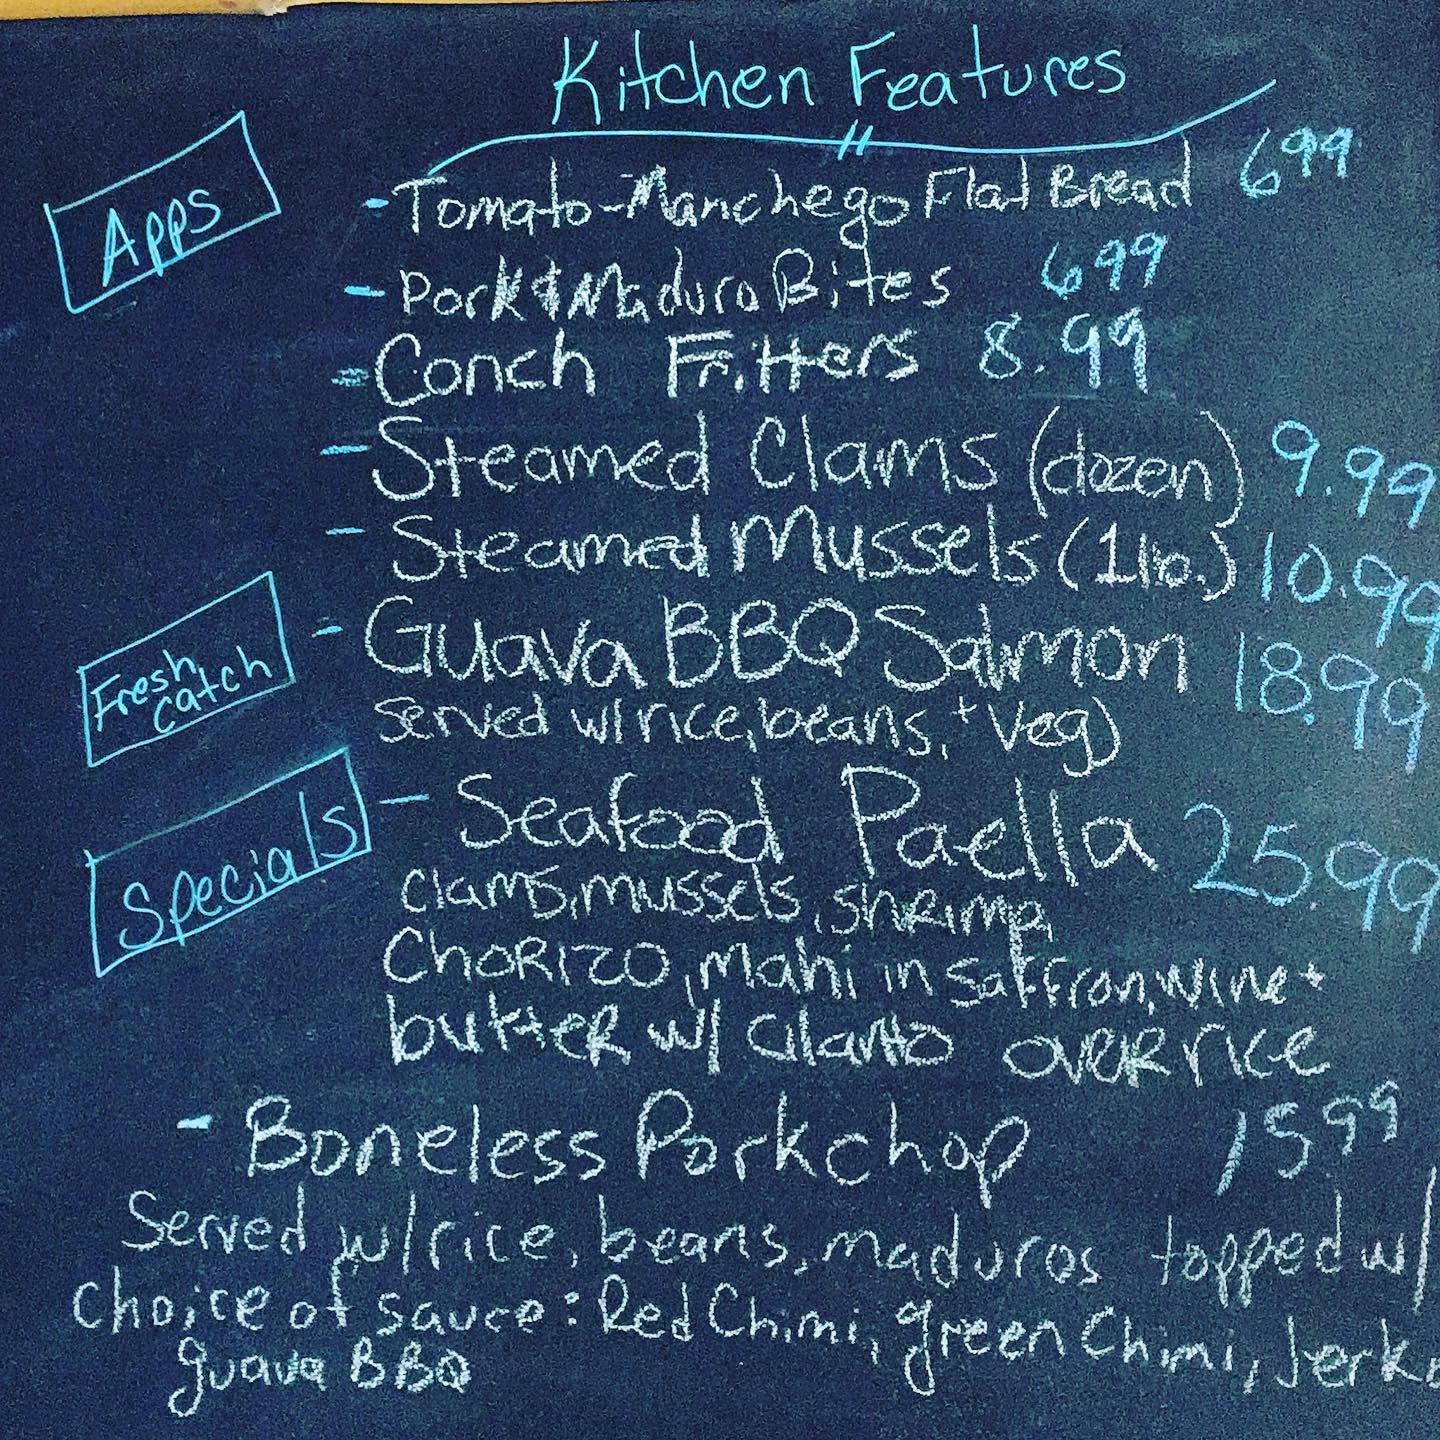 Kitchen Features
Apps
- Tomato-Manchego Flat Bread 699
- Pork & Maduro Bites 699
- Conch Fritters 8.99
- Steamed Clams (dozen) 9.99
- Steamed Mussels (1 lb.) 10.99
Fresh Catch
- Guava BBQ Salmon 18.99
served w/rice, beans, + veg)
Specials
- Seafood Paella 25.99
clams, mussels, shrimp,
Chorizo, Mahi in saffron, wine +
butter w/ cilantro over rice
- Boneless Porkchop 15.99
Served w/rice, beans, maduros topped w/
choice of sauce: Red Chimi, green Chimi, Jerk
guava BBQ